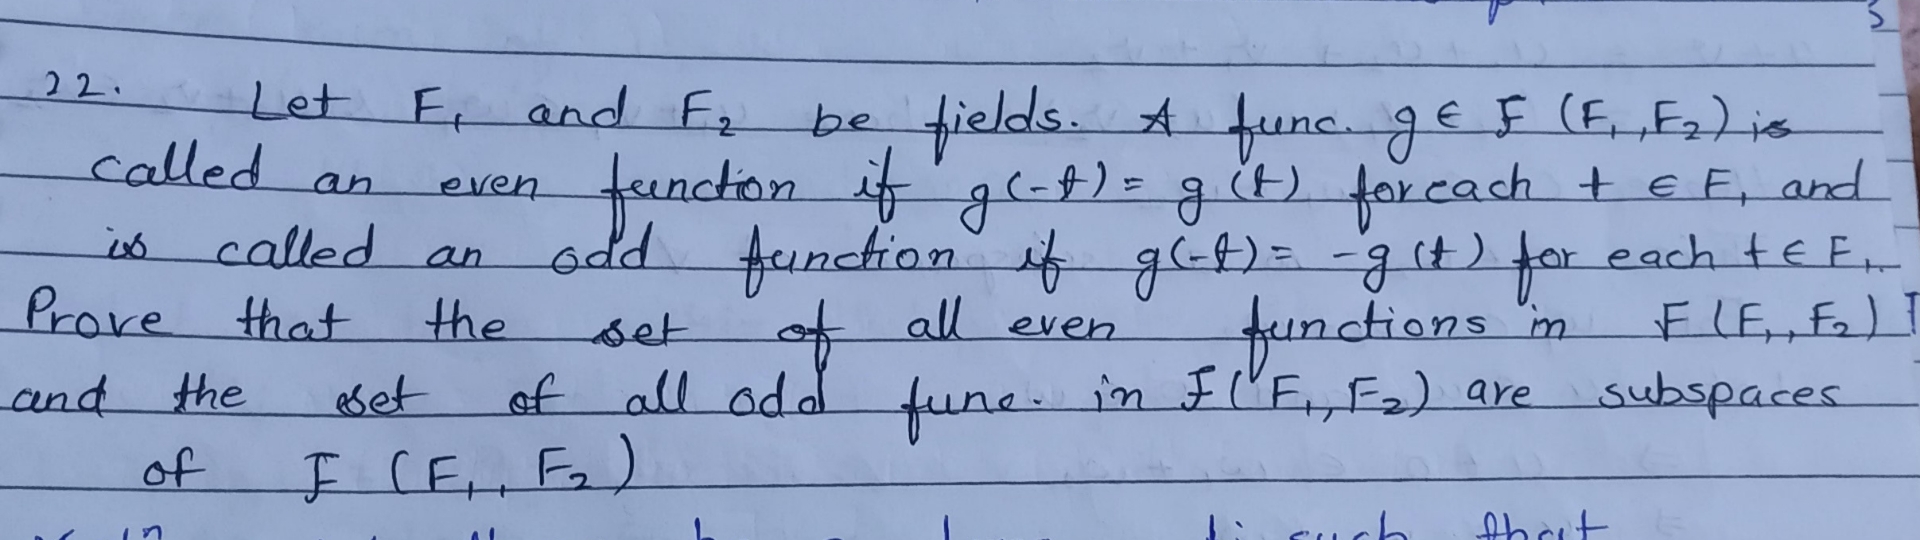 22. Let F₁ and F₂ be fields. A func. g ∈ F (F₁, F₂) is
called an even function if g(-t) = g(t) for each t ∈ F₁ and
is called an odd function if g(-t) = -g(t) for each t ∈ F₁.
Prove that the set of all even functions in F(F₁, F₂)
and the set of all odd func. in F(F₁, F₂) are subspaces
of F (F₁, F₂)
such that